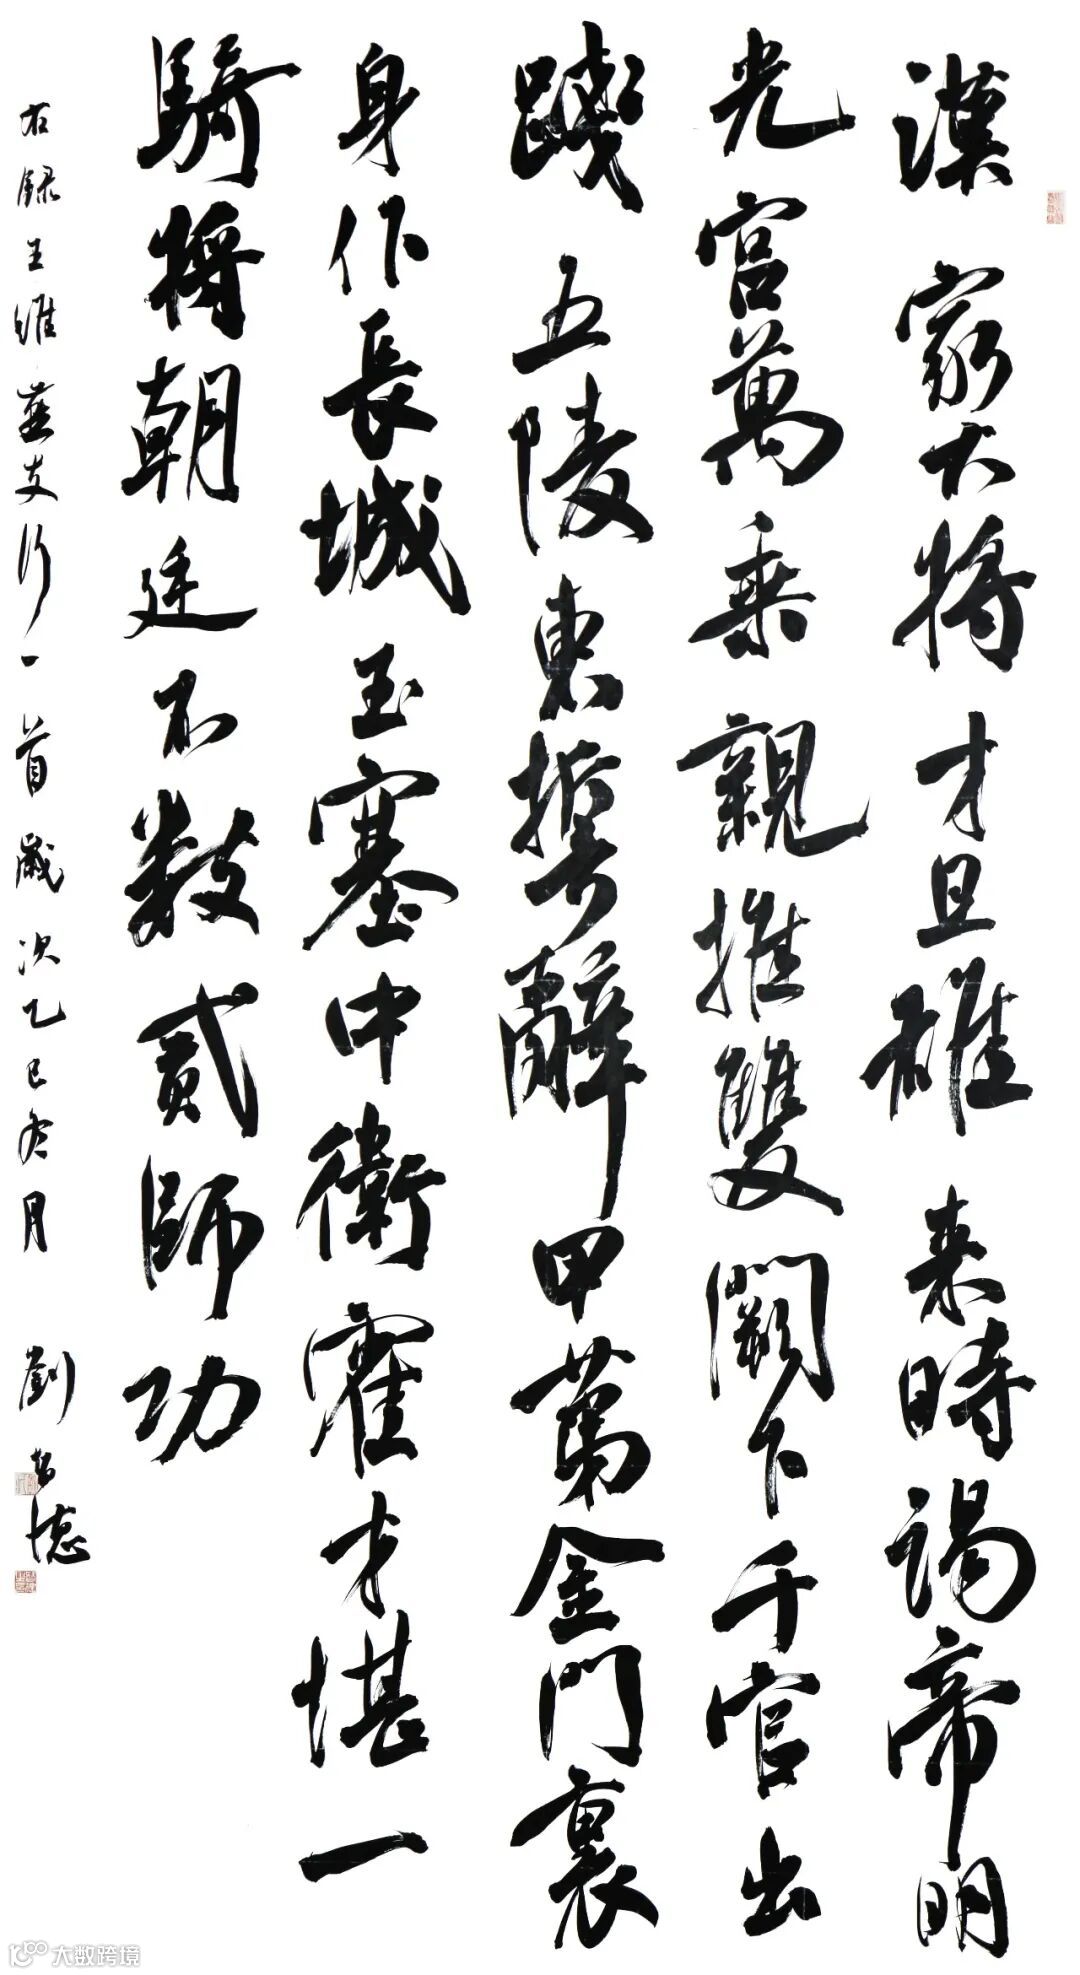 漢家大將才且雄来時謁帝明
光宮萬乘親推雙闕下千官出
踐五陵東誓辭甲第金門裏
身作長城玉塞中衛霍才堪一
騎將朝廷不數貳師功
右録王維燕支行一首歲次乙巳冬月 劉
大数跨境